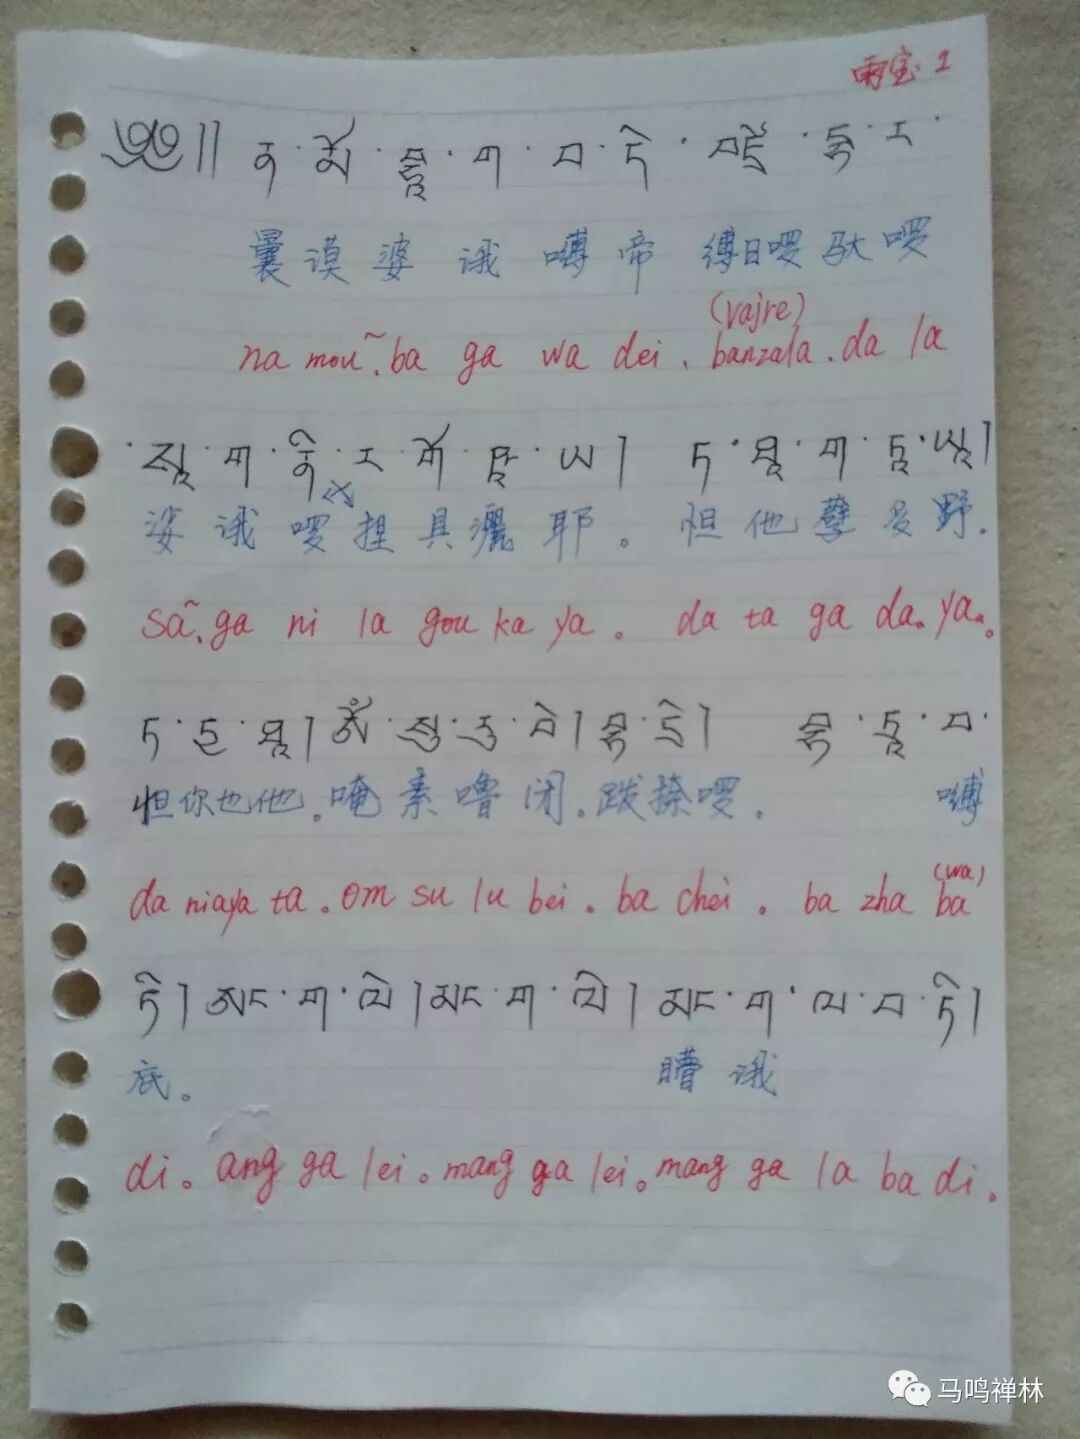 雨宝.1
༄༅།། ན་མོ་བྷ་ག་བ་ཏེ་བཛྲ་དྷ་ར་
曩谟婆诹嚩帝 缚日啰驮啰
(vajre)
na mou~.ba ga wa dei.banzala.da la
་སཱ་ག་ནི་ར་གོ་ཥཱ་ཡ། ཏ་ཐཱ་ག་ཏཱ་ཡ།
娑诹啰捏具灑耶。怛他孽多野.
sa~.ga ni la gou ka ya。da ta ga da.ya.。
ཏ་དྱ་ཐཱ། ཨོཾ་སུ་རུ་བེ། བྷ་དྲེ། བྷ་དྲཱ་བ་
怛你也他.唵素噜闭.跋捺啰. 嚩
(wa)
da niaya ta.om su lu bei.ba chei.ba zha ba
ཏི། ཨང་ག་ལེ། མང་ག་ལེ། མང་ག་ལ་བ་ཏི།
底。 瞢诹
di。ang ga lei。mang ga lei。mang ga la ba di.
马鸣禅林